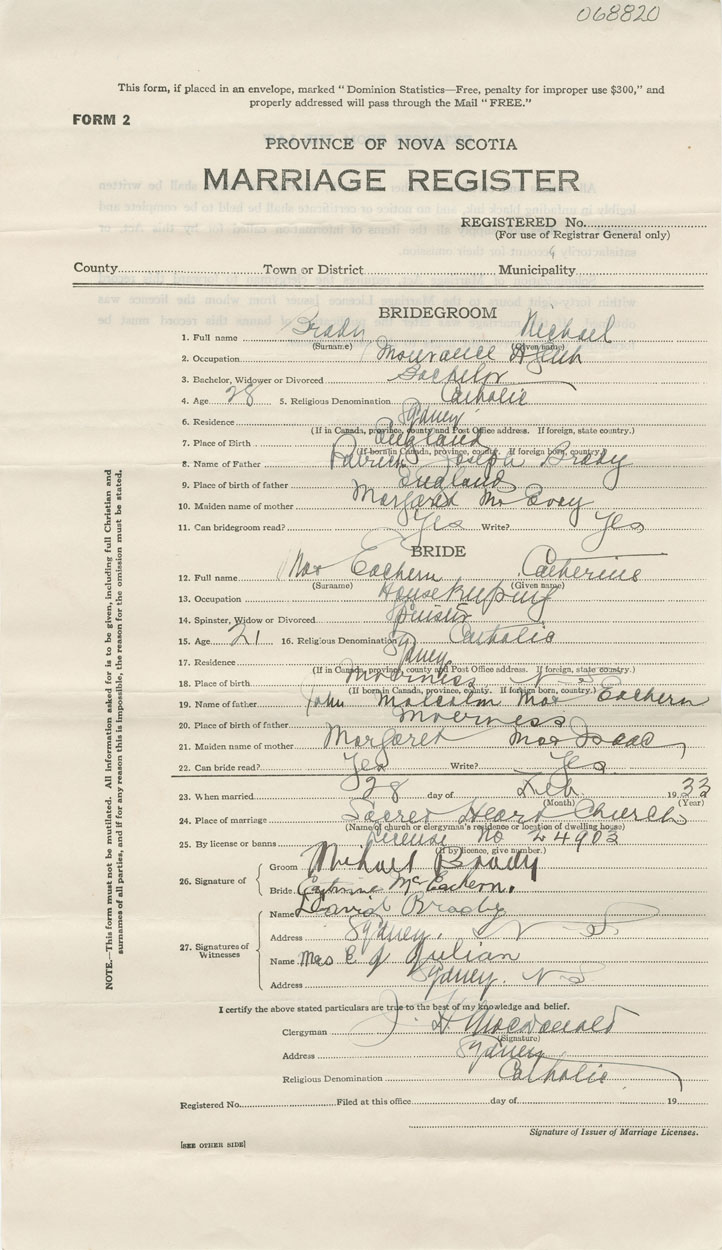 068820
This form, if placed in an envelope, marked "Dominion Statistics—Free, penalty for improper use $300," and
properly addressed will pass through the Mail "FREE."
FORM 2
PROVINCE OF NOVA SCOTIA
MARRIAGE REGISTER
REGISTERED No.
(For use of Registrar General only)
County Town or District Municipality
BRIDEGROOM
1. Full name Brady Michael
(Surname) (Given name)
2. Occupation Insurance Agent
3. Bachelor, Widower or Divorced Bachelor
4. Age 28 5. Religious Denomination Catholic
6. Residence Sydney
(If in Canada, province, county and Post Office address. If foreign, state country.)
7. Place of Birth England
(If born in Canada, province, county. If foreign born, country.)
8. Name of Father Patrick Joseph Brady
9. Place of birth of father England
10. Maiden name of mother Margaret McEvoy
11. Can bridegroom read? Yes Write? Yes
BRIDE
12. Full name MacEachern Catherine
(Surname) (Given name)
13. Occupation Housekeeping
14. Spinster, Widow or Divorced Spinster
15. Age 21 16. Religious Denomination Catholic
17. Residence Sydney
(If in Canada, province, county and Post Office address. If foreign, state country.)
18. Place of birth Inverness N S
(If born in Canada, province, county. If foreign born, country.)
19. Name of father John Malcolm MacEachern
20. Place of birth of father Inverness
21. Maiden name of mother Margaret MacIsaac
22. Can bride read? Yes Write? Yes
23. When married 28 day of Feb. 1933
(Month) (Year)
24. Place of marriage Sacred Heart Church
(Name of church or clergyman's residence or location of dwelling house)
25. By license or banns License No 24903
(If by licence, give number.)
26. Signature of
Groom Michael Brady
Bride Catherine McEachern.
27. Signatures of Witnesses
Name David
Address Sydney. N S
Name Mrs E J
Address Sydney. N S
I certify the above stated particulars are true to the best of my knowledge and belief.
Clergyman J. H. Macdonald
(Signature)
Address Sydney
Religious Denomination Catholic
Registered No. Filed at this office day of 19
Signature of Issuer of Marriage Licenses.
[SEE OTHER SIDE]
NOTE.—This form must not be mutilated. All information asked for is to be given, including full Christian and
surnames of all parties, and if for any reason this is impossible, the reason for the omission must be stated.